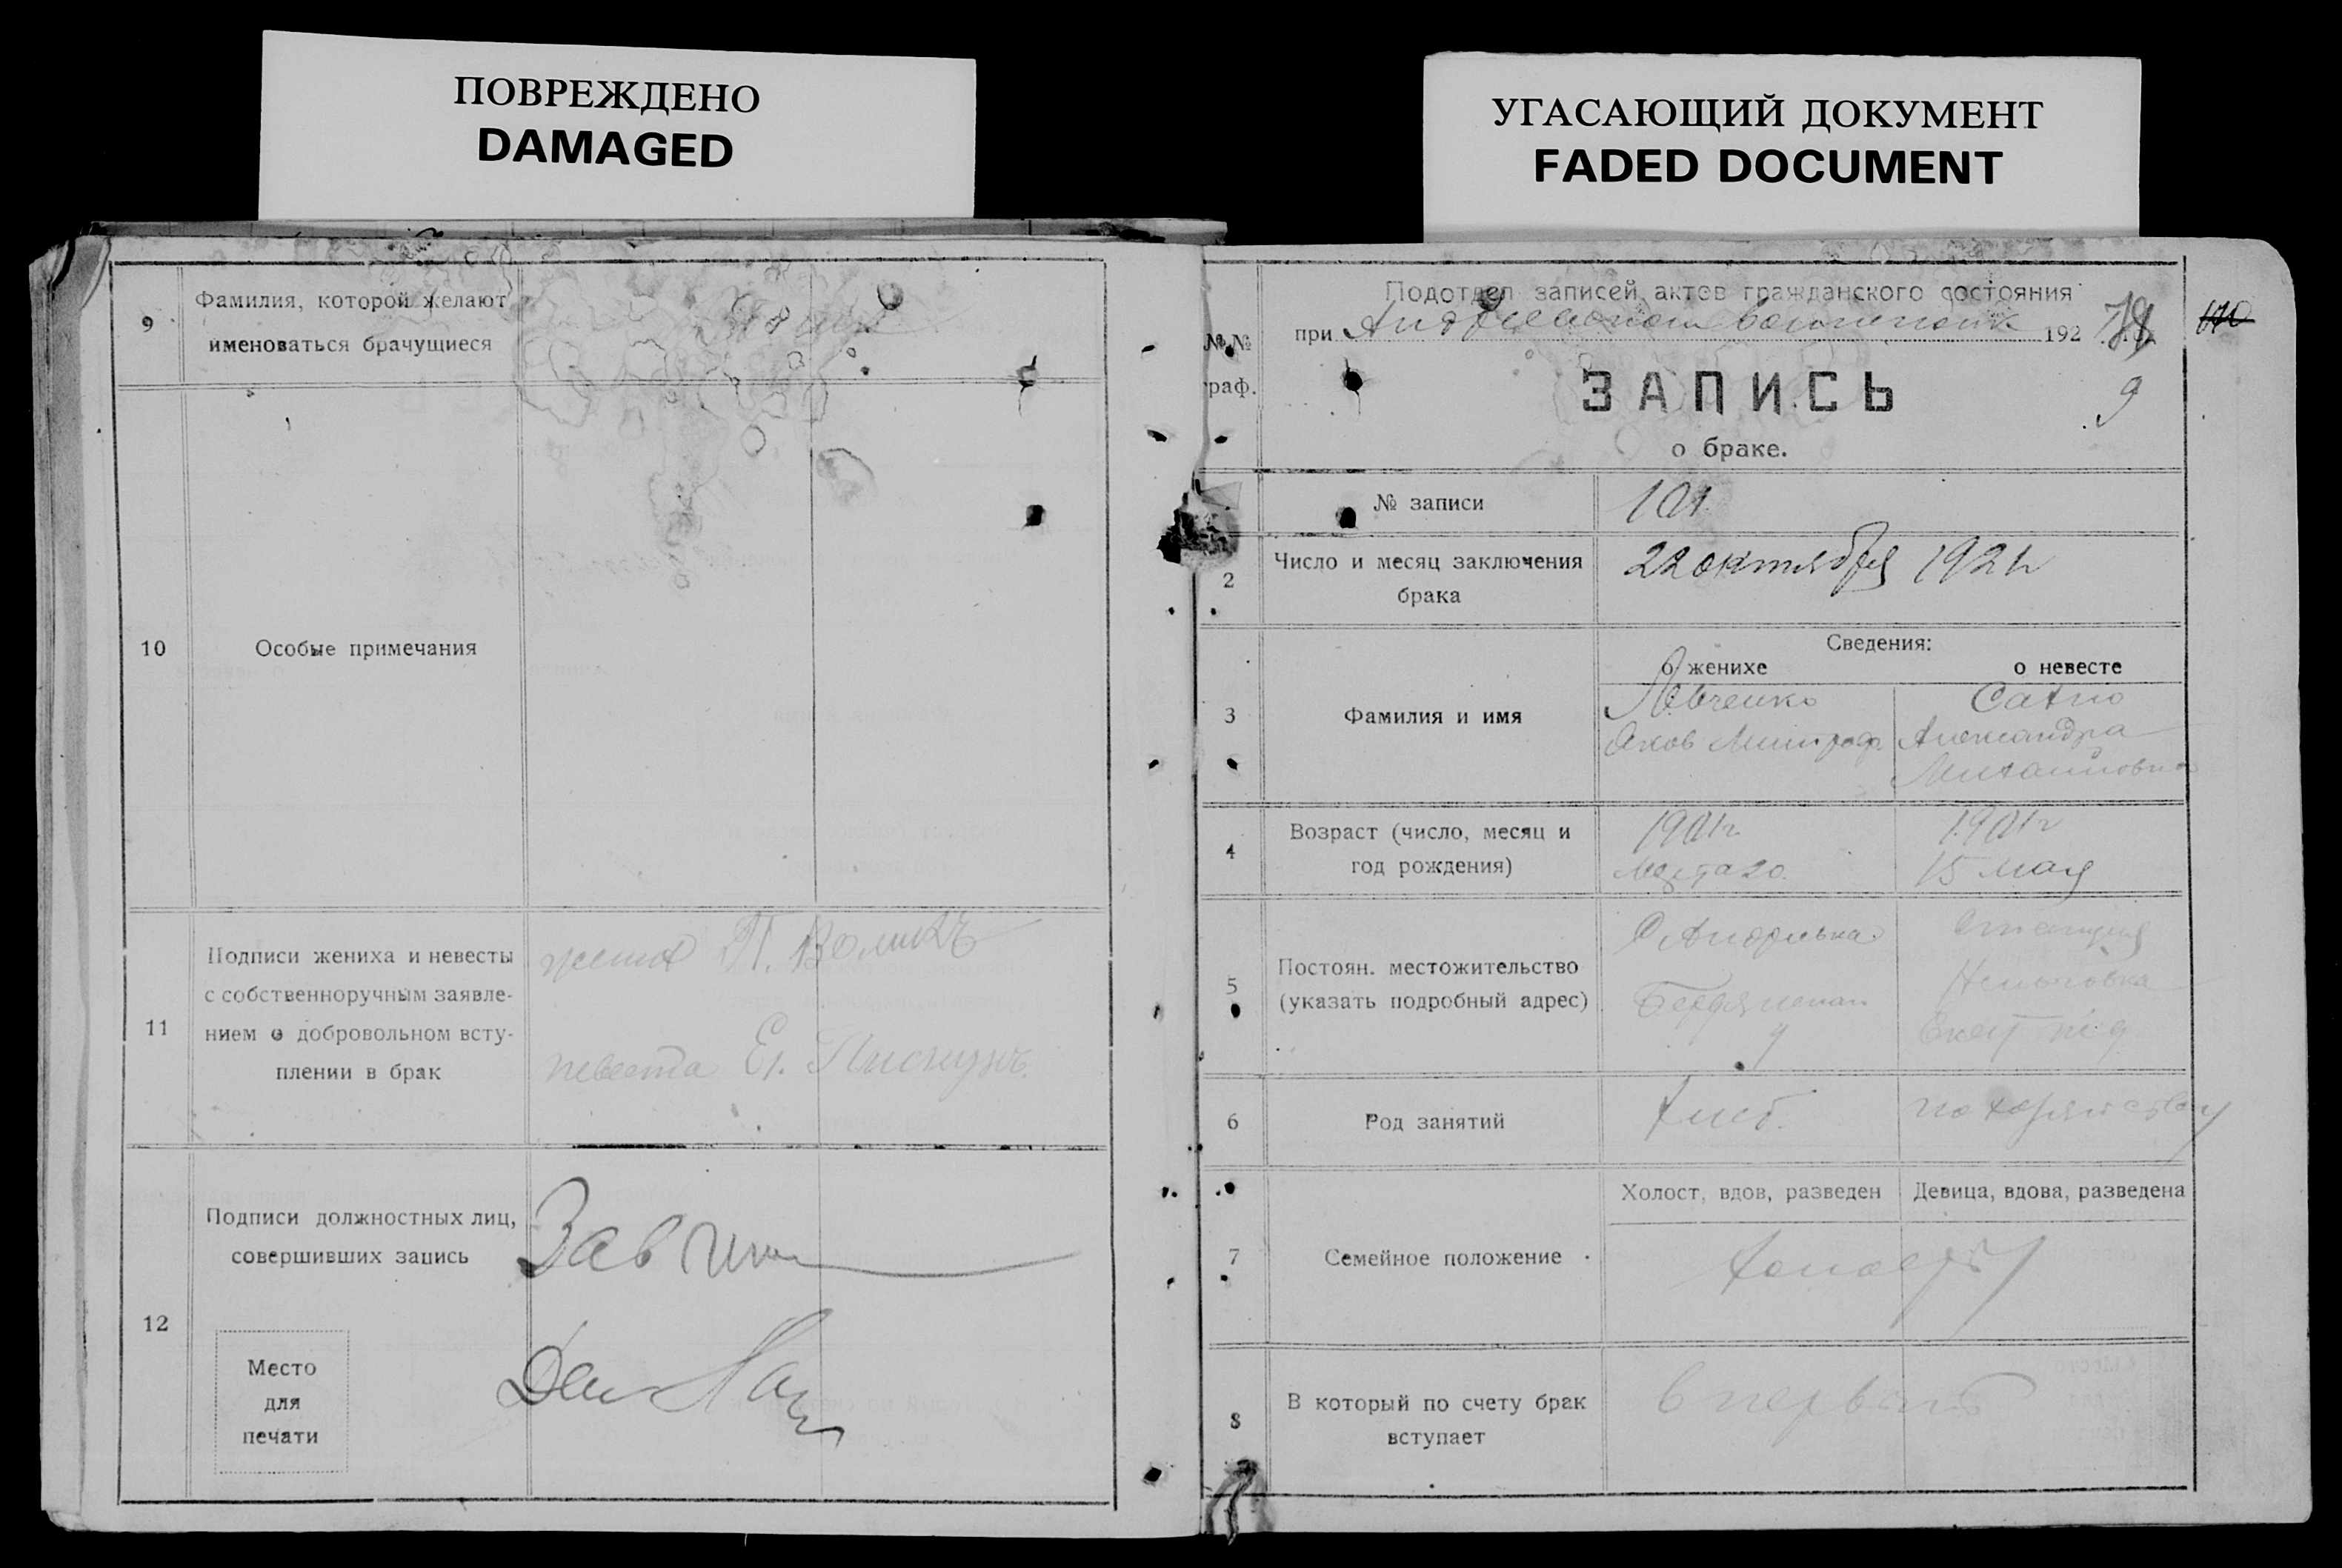 ПОВРЕЖДЕНО
DAMAGED
УГАСАЮЩИЙ ДОКУМЕНТ
FADED DOCUMENT
9
Фамилия, которой желают
именоваться брачущиеся
10
Особые примечания
11
Подписи жениха и невесты
с собственноручным заявле-
нием о добровольном всту-
плении в брак
жених П.
невеста Ел.
12
Подписи должностных лиц,
совершивших запись
Зав
Место
для
печати
Подотдел записей актов гражданского состояния
при 192
№№
граф.
ЗАПИСЬ
9
о браке.
№ записи
101
2
Число и месяц заключения
брака
22 октября 1921 г
Сведения:
о женихе
о невесте
3
Фамилия и имя
Левченко
Яков
Сахно
Александра
Михайловна
4
Возраст (число, месяц и
год рождения)
1901 г
Марта 20
1901 г
15 мая
5
Постоян. местожительство
(указать подробный адрес)
С Андреевка
Бердянская
станция
6
Род занятий
хлеб.
по хозяйству
Холост, вдов, разведен
Девица, вдова, разведена
7
Семейное положение
холост
8
В который по счету брак
вступает
в первый